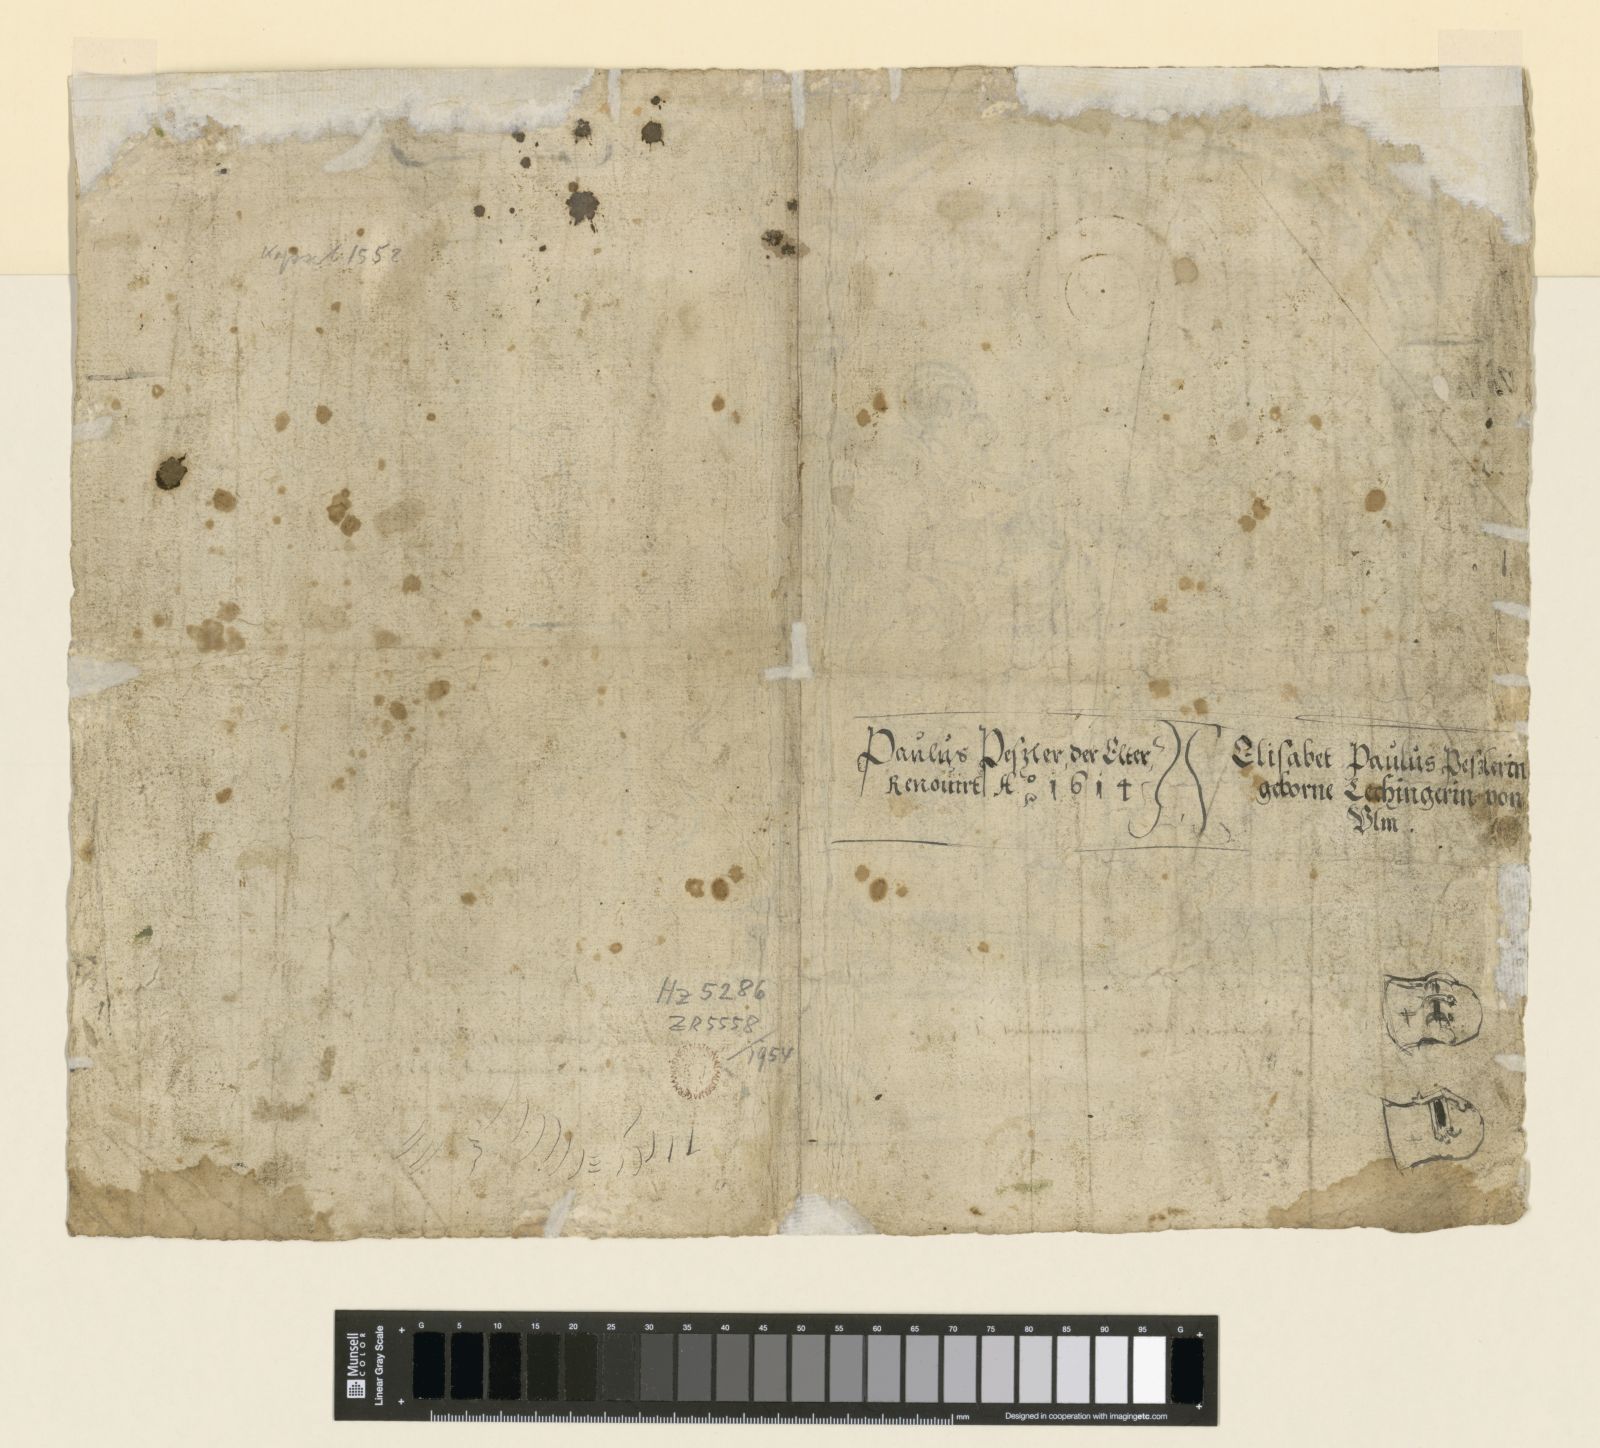 Kapsel 1552
Paulus Peßler, der Elter,
Renouirt Ao 1614
Elisabet Paulus Peßlerin
geborne Lechingerin von
Vlm.
Hz 5286
ZR 5558
/1954
Munsell
COLOR
Linear Gray Scale
G 5 10 15 20 25 30 35 40 45 50 55 60 65 70 75 80 85 90 95 G
mm
Designed in cooperation with imagingetc.com